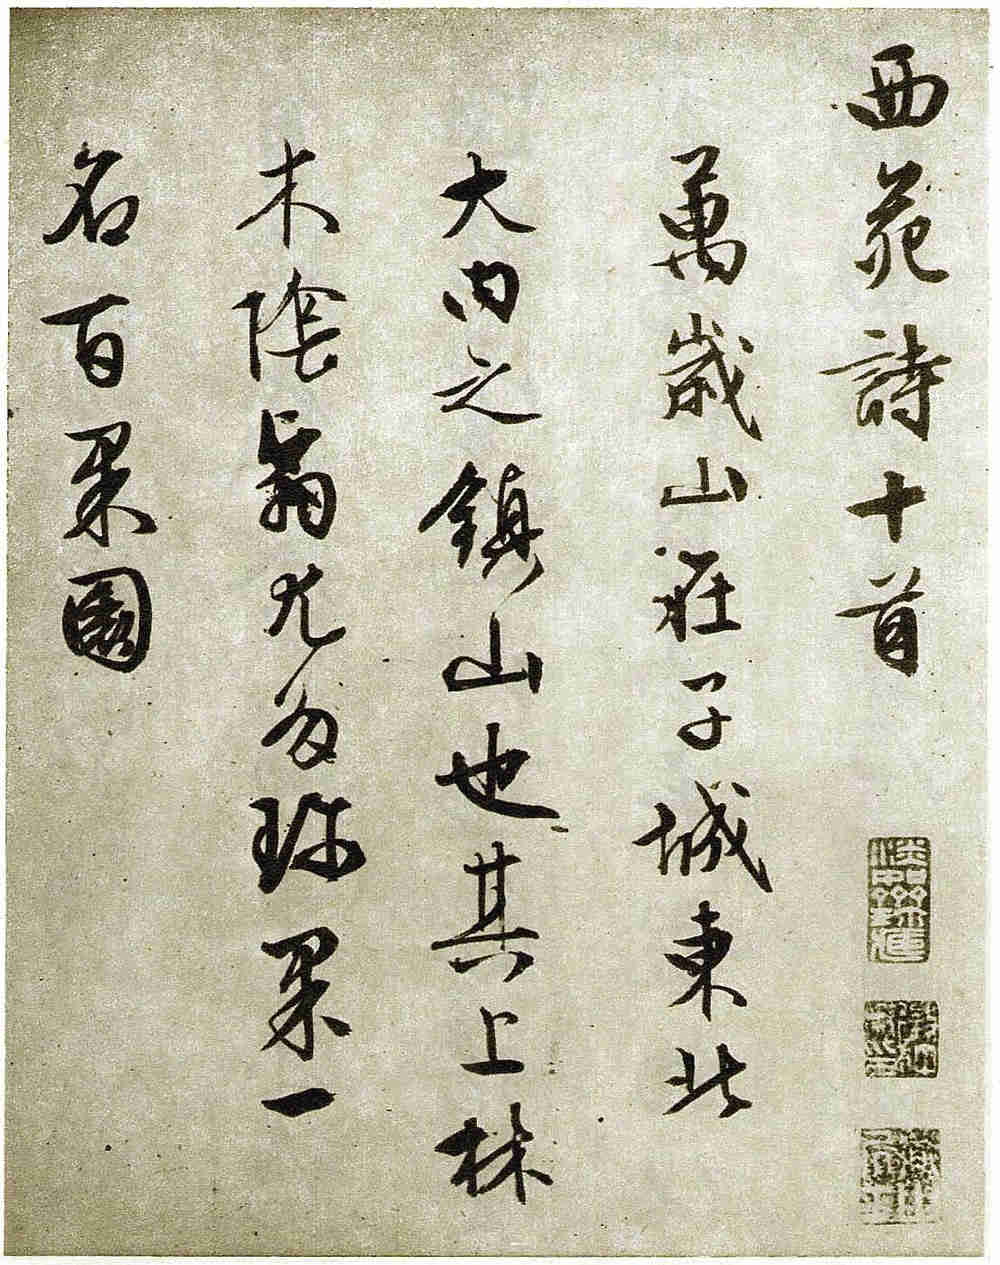 西苑詩十首
萬歲山在子城東北
大内之鎮山也其上林
木陰翳尤多珍果一
名百果園